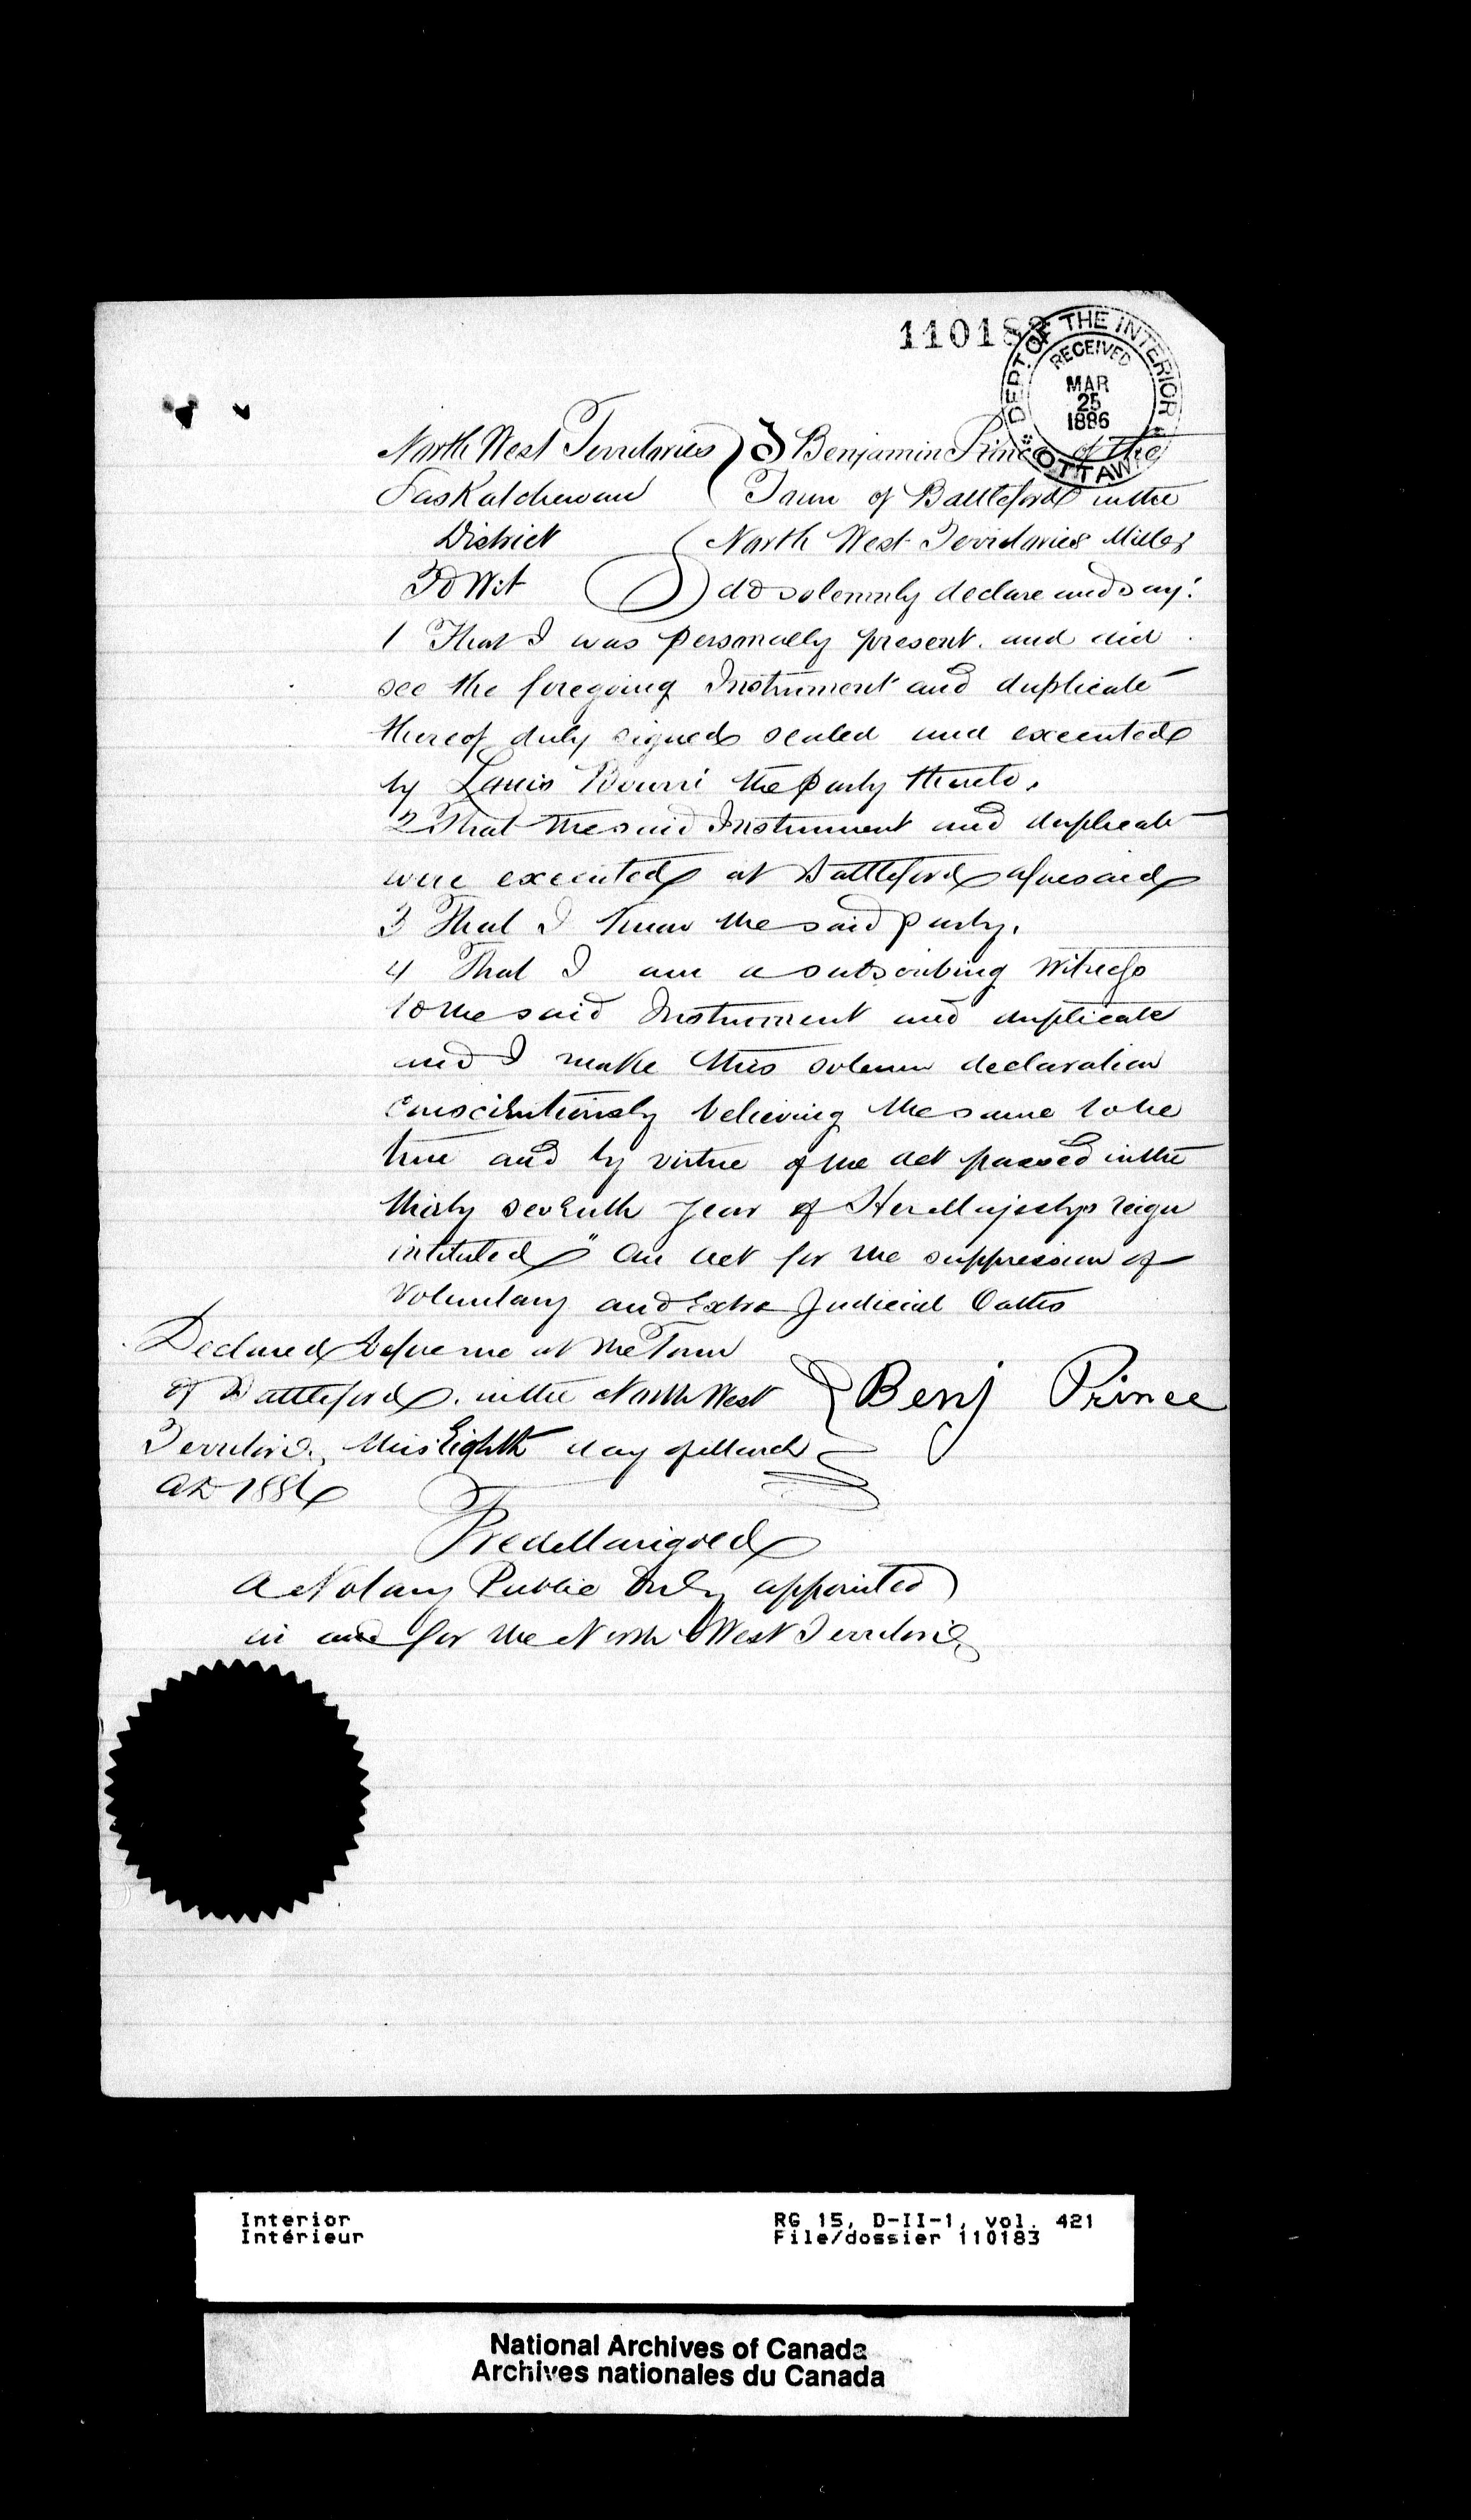 110183
DEPT. OF THE INTERIOR
RECEIVED
MAR
25
1886
OTTAWA
North West Territories } I Benjamin Prince of the
Saskatchewan Town of Battleford in the
District North West Territories Miller
To Wit do solemnly declare and say:
1 That I was personally present. and did
see the foregoing Instrument and duplicate
thereof duly signed sealed and executed
by Louis Bourri the party thereto.
2 That the said Instrument and duplicate
were executed at Battleford aforesaid
3 That I know the said party.
4 That I am a subscribing witness
to the said Instrument and duplicate
and I make this solemn declaration
conscientiously believing the same to be
true and by virtue of the act passed in the
thirty seventh year of Her Majestys reign
intituled " An act for the suppression of
Voluntary and Extra Judicial Oaths
Declared before me at the Town
of Battleford. in the North West } Benj Prince
Territories this Eighth day of March
AD 1886
Fred
A Notary Public duly appointed
in and for the North West Territories
Interior
Intérieur
RG 15, D-II-1, vol. 421
File/dossier 110183
National Archives of Canada
Archives nationales du Canada